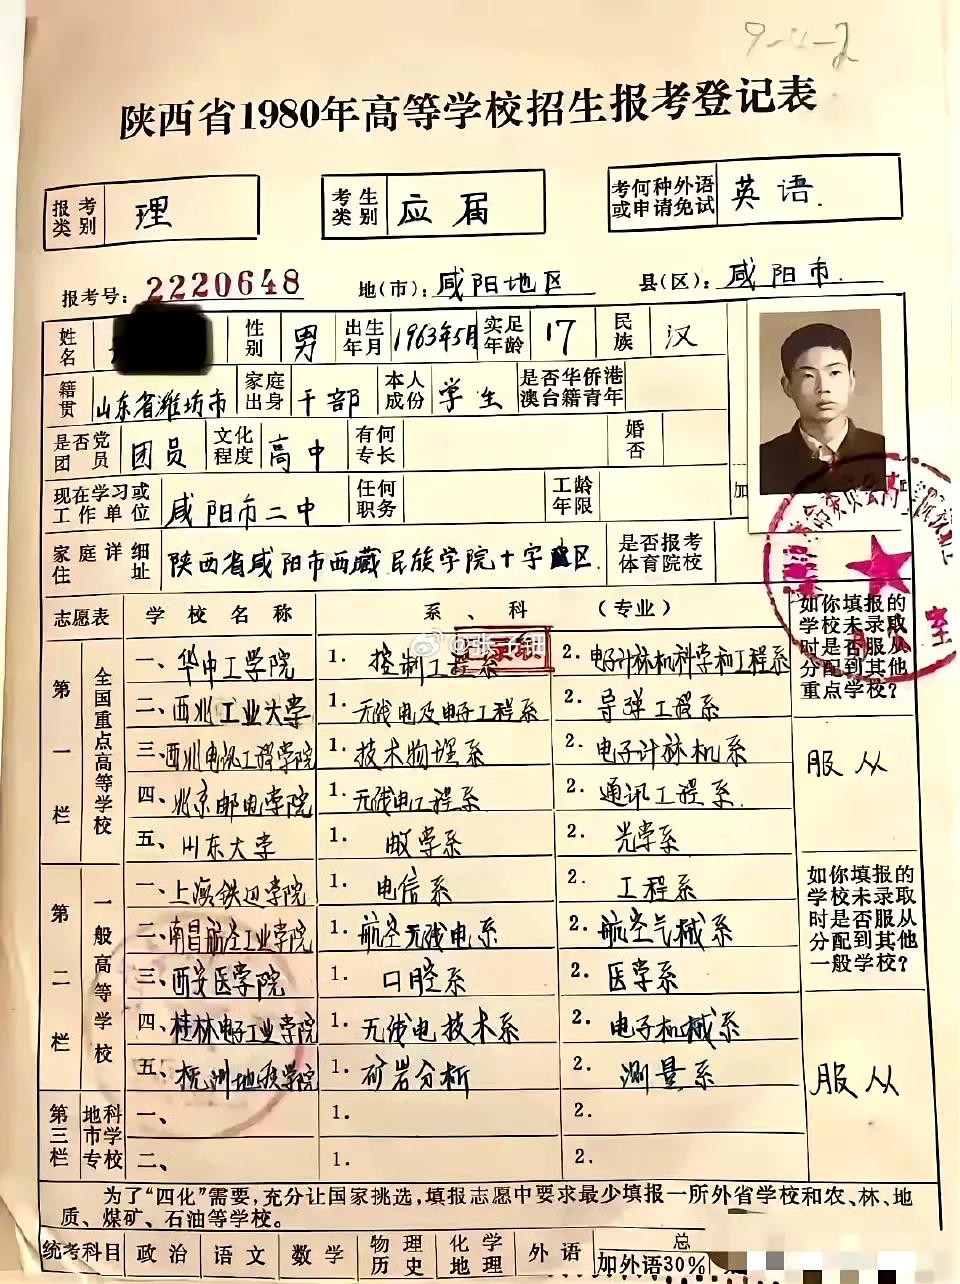 9-4-2
陕西省1980年高等学校招生报考登记表
报考类别 理 考生类别 应届 考何种外语或申请免试 英语.
报考号: 2220648 地(市): 咸阳地区 县(区): 咸阳市.
姓名 性别 男 出生年月 1963年5月 实足年龄 17 民族 汉
籍贯 山东省潍坊市 家庭出身 干部 本人成份 学生 是否华侨港澳台籍青年
是否党团员 团员 文化程度 高中 有何专长 婚否
现在学习或工作单位 咸阳市二中 任何职务 工龄年限
加
家庭详细住址 陕西省咸阳市西藏民族学院十字 区. 是否报考体育院校
志愿表 学校名称 系、科 (专业) 如你填报的学校未录取时是否服从分配到其他重点学校?
第一栏 全国重点高等学校
一、华中工学院 1. 控制工程系 2. 电子计祘机科学和工程系
@张子钿
二、西北工业大学 1. 无线电及电子工程系 2. 导弹工程系
三、西北电讯工程学院 1. 技术物理系 2. 电子计祘机系 服从
四、北京邮电学院 1. 无线电工程系 2. 通讯工程系.
五、山东大学 1. 数学系 2. 光学系
第二栏 一般高等学校 如你填报的学校未录取时是否服从分配到其他一般学校?
一、上海铁道学院 1. 电信系 2. 工程系
二、南昌航空工业学院 1. 航空无线电系 2. 航空气械系
三、西安医学院 1. 口腔系 2. 医学系
四、桂林电子工业学院 1. 无线电技术系 2. 电子机械系
五、杭州地质学院 1. 矿岩分析 2. 测量系 服从
第三栏 地市专科学校
一、 1. 2.
二、 1. 2.
为了“四化”需要,充分让国家挑选,填报志愿中要求最少填报一所外省学校和农、林、地
质、煤矿、石油等学校。
统考科目 政治 语文 数学 物理历史 化学地理 外语 总
加外语30%